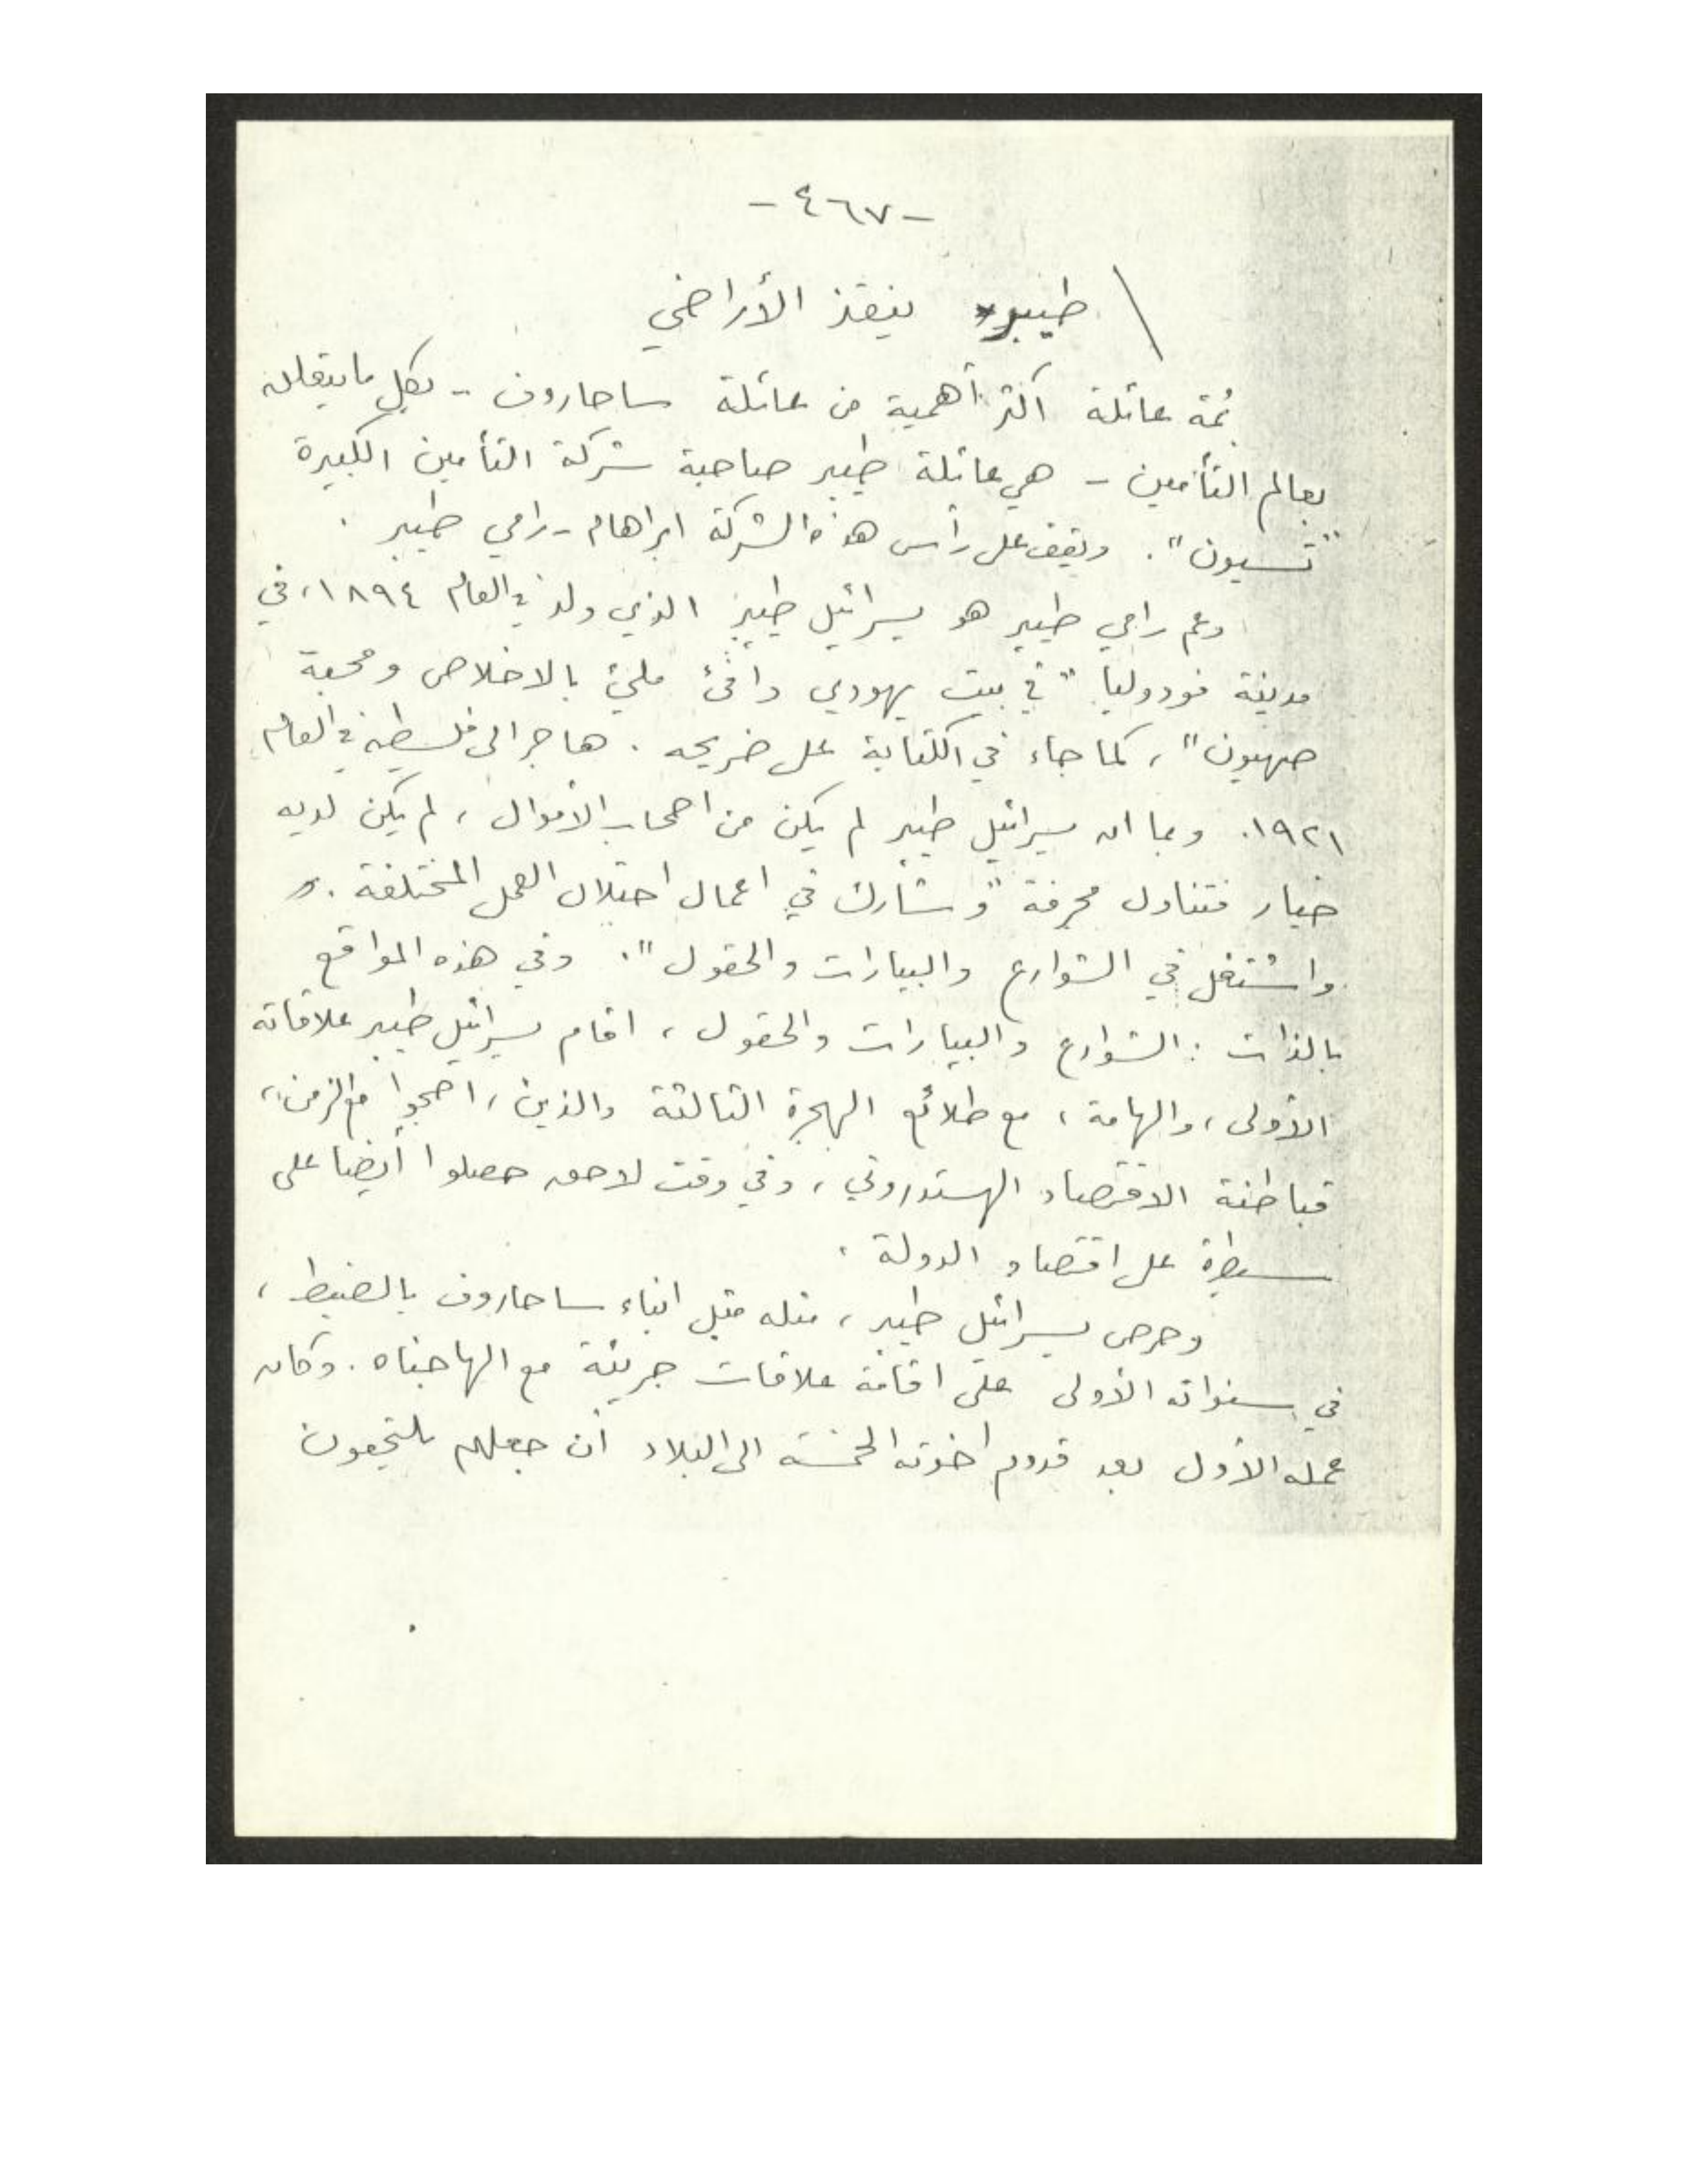 - ٤٦٧ -
طيبر ينقذ الأراضي
ثمة عائلة اكثر أهمية من عائلة ساحاروف - بكل ما يتعلق
بعالم التأمين - هي عائلة طيبر صاحبة شركة التأمين الكبيرة
"تسيون". ويقف على رأس هذه الشركة ابراهام - رامي طيبر.
وعم رامي طيبر هو يسرائيل طيبر الذي ولد في العام ١٨٩٤، في
مدينة فودوليا "في بيت يهودي دافئ مليئ بالاخلاص ومحبة
صهيون"، كما جاء في الكتابة على ضريحه. هاجر الى فلسطين في العام
١٩٢١. وبما ان يسرائيل طيبر لم يكن من اصحاب الأموال، لم يكن لديه
خيار فتناول مجرفة "وشارك في اعمال احتلال العمل المختلفة.
واشتغل في الشوارع والبيارات والحقول". وفي هذه المواقع
بالذات: الشوارع والبيارات والحقول، اقام يسرائيل طيبر علاقاته
الأولى، والهامة، مع طلائع الهجرة الثالثة والذين، اصبحوا مع الزمن،
قباطنة الاقتصاد الهستدروتي، وفي وقت لاحق حصلوا أيضا على
سيطرة على اقتصاد الدولة.
وحرص يسرائيل طيبر، مثله مثل ابناء ساحاروف بالضبط،
في سنواته الأولى على اقامة علاقات جريئة مع الهاجناه. وكان
عمله الأول بعد قدوم اخوته الخمسة الى البلاد أن جعلهم يلتحقون